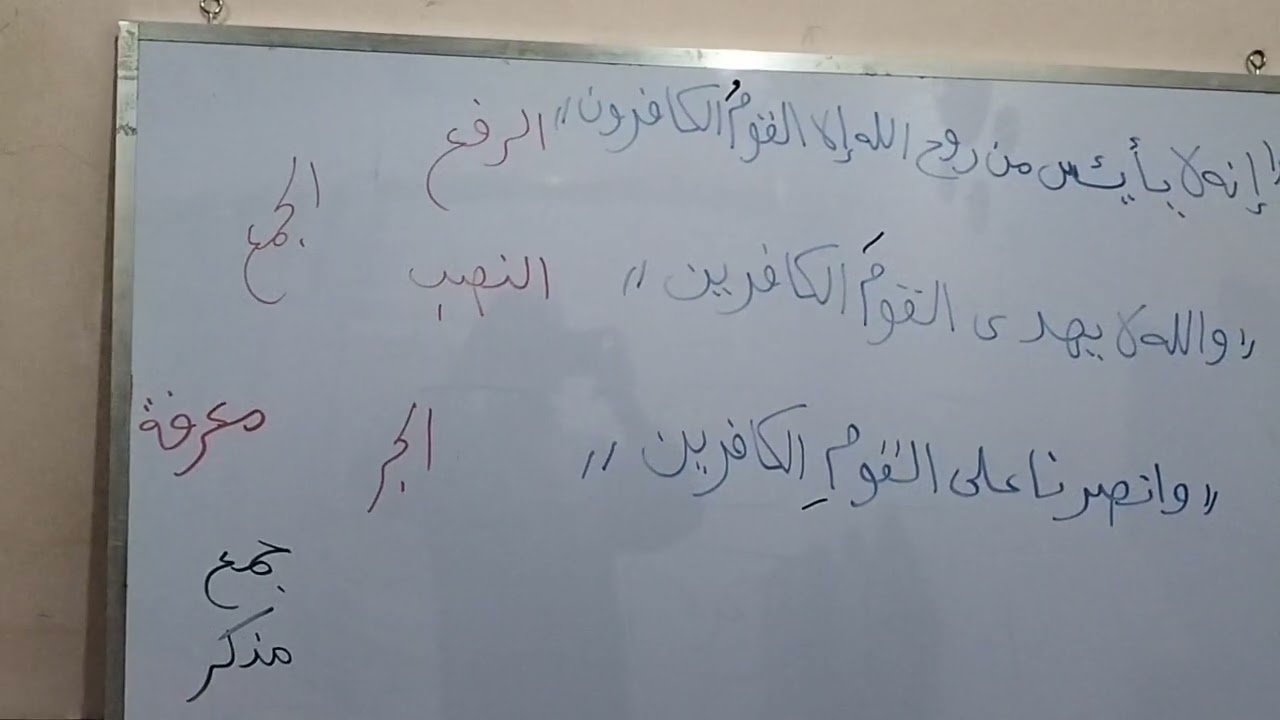 "إنه لا يأيئس من روح الله إلا القومُ الكافرون" الرفع
الجمع
"والله لا يهدى القومَ الكافرين" النصب
"وانصرنا على القومِ الكافرين" الجر
معرفة
جمع
مذكر